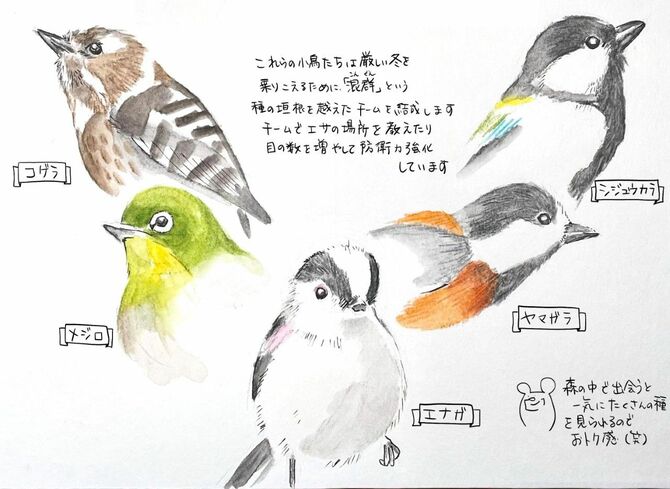 これらの小鳥たちは厳しい冬を
こんぐん
乗りこえるために、「混群」という
種の垣根を越えたチームを結成します
チームでエサの場所を教えたり
目の数を増やして防衛力強化
しています
コゲラ
シジュウカラ
メジロ
ヤマガラ
エナガ
森の中で出会うと
一気にたくさんの種
を見られるので
おトク感(笑)